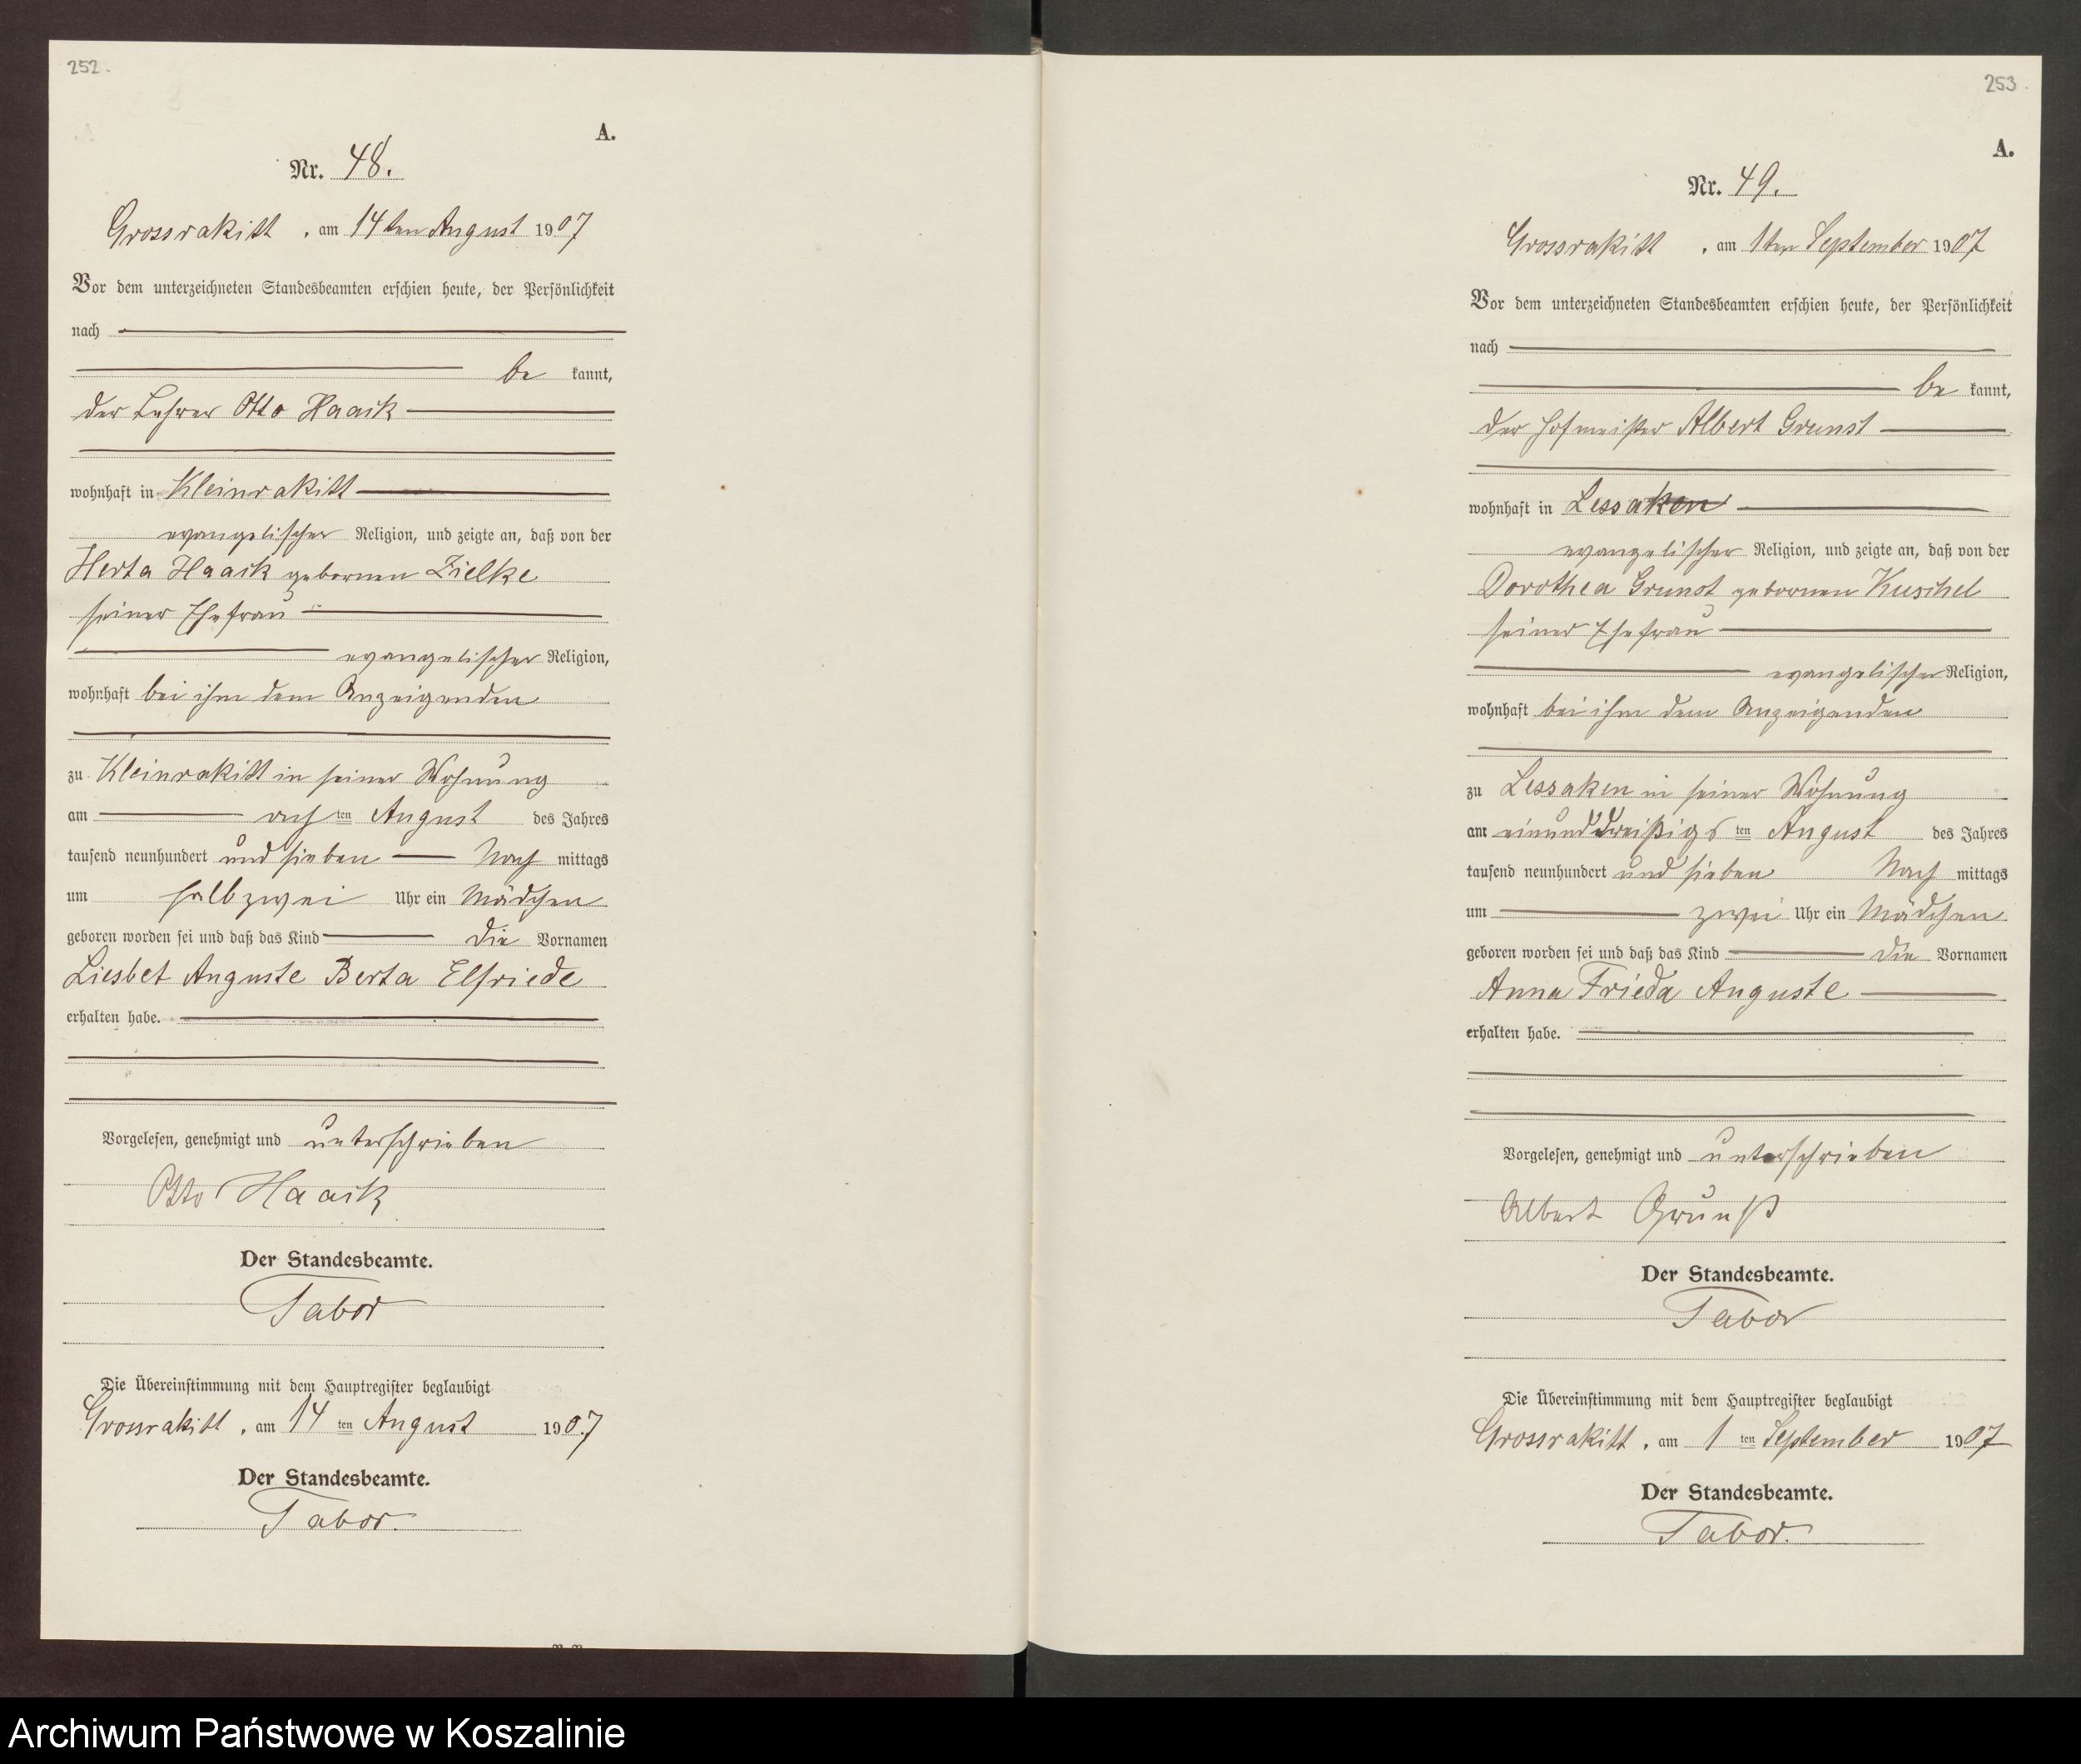 252.
A.
Nr. 48.
Grossrakitt, am 14ten August 1907
Vor dem unterzeichneten Standesbeamten erschien heute, der Persönlichkeit
nach
be kannt,
der Lehrer Otto Haack
wohnhaft in Kleinrakitt
evangelischer Religion, und zeigte an, daß von der
Herta Haack gebornen Zielke
seiner Ehefrau
evangelischer Religion,
wohnhaft bei ihm dem Anzeigenden
zu Kleinrakitt in seiner Wohnung
am acht ten August des Jahres
tausend neunhundert und sieben Nach mittags
um halb zwei Uhr ein Mädchen
geboren worden sei und daß das Kind die Vornamen
Liesbet Auguste Berta Elfriede
erhalten habe.
Vorgelesen, genehmigt und unterschrieben
Otto Haack
Der Standesbeamte.
Tabor
Die Übereinstimmung mit dem Hauptregister beglaubigt
Grossrakitt, am 14 ten August 1907
Der Standesbeamte.
Tabor.
253.
A.
Nr. 49.
Grossrakitt, am 1ten September 1907
Vor dem unterzeichneten Standesbeamten erschien heute, der Persönlichkeit
nach
be kannt,
der Hofmeister Albert Grunst
wohnhaft in Lessaken
evangelischer Religion, und zeigte an, daß von der
Dorothea Grunst gebornen Kuschel
seiner Ehefrau
evangelischer Religion,
wohnhaft bei ihm dem Anzeigenden
zu Lessaken in seiner Wohnung
am einunddreißigs ten August des Jahres
tausend neunhundert und sieben Nach mittags
um zwei Uhr ein Mädchen
geboren worden sei und daß das Kind die Vornamen
Anna Frieda Auguste
erhalten habe.
Vorgelesen, genehmigt und unterschrieben
Albert Grunst
Der Standesbeamte.
Tabor
Die Übereinstimmung mit dem Hauptregister beglaubigt
Grossrakitt, am 1 ten September 1907
Der Standesbeamte.
Tabor.
Archiwum Państwowe w Koszalinie